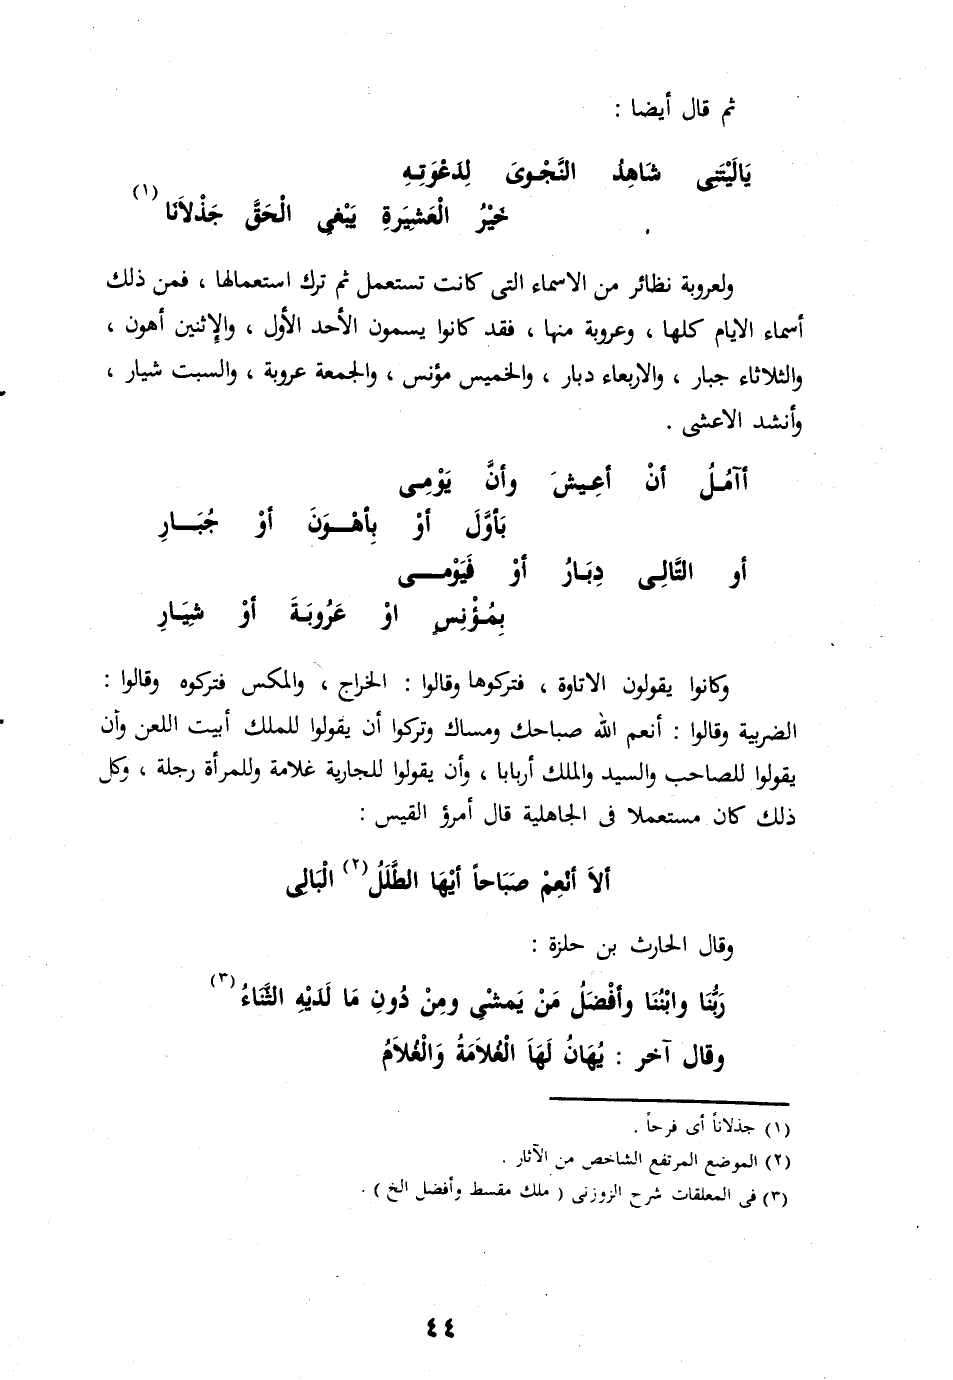 ثم قال أيضا :
يَالَيْتَنِى شَاهِدُ النَّجْوىَ لِدَعْوَتِهِ
خَيْرُ الْعَشِيَرةِ يَبْغي الْحَقَّ جَذْلاَنَا (١)
ولعروبة نظائر من الاسماء التى كانت تستعمل ثم ترك استعمالها ، فمن ذلك
أسماء الايام كلها ، وعروبة منها ، فقد كانوا يسمون الأحد الأول ، والإثنين أهون ،
والثلاثاء جبار ، والاربعاء دبار ، والخميس مؤنس ، والجمعة عروبة ، والسبت شيار ،
وأنشد الاعشى .
أآمُلُ أنْ أعِيشَ وأنَّ يَوْمِى
بَأوَّلَ أوْ بِأهْوَنَ أوْ جُبَارِ
أو التَّالِى دِبَارُ أوْ فَيَوْمى
بِمُؤْنِسٍ اوْ عَرُوبَةَ أوْ شِيَارِ
وكانوا يقولون الاتاوة ، فتركوها وقالوا : الخراج ، والمكس فتركوه وقالوا :
الضريبة وقالوا : أنعم الله صباحك ومساك وتركوا أن يقولوا للملك أبيت اللعن وأن
يقولوا للصاحب والسيد والملك أربابا ، وأن يقولوا للجارية غلامة وللمرأة رجلة ، وكل
ذلك كان مستعملا فى الجاهلية قال أمرؤ القيس :
ألاَ أنْعِمْ صَبَاحاً أيْهَا الطَّلَلُ (٢) الْبَالِى
وقال الحارث بن حلزة :
رَبُّنَا وابْنُنَا وأفْضَلُ مَنْ يَمشْي ومِنْ دُونِ مَا لَدَيْهِ الثَّنَاءُ (٣)
وقال آخر : يُهَانُ لَهَا الْغُلاَمَةُ وَالْغُلاَمُ
(١) جذلاناً أى فرحاً .
(٢) الموضع المرتفع الشاخص من الآثار .
(٣) فى المعلقات شرح الزوزنى ( ملك مقسط وأفضل الخ ) .
٤٤